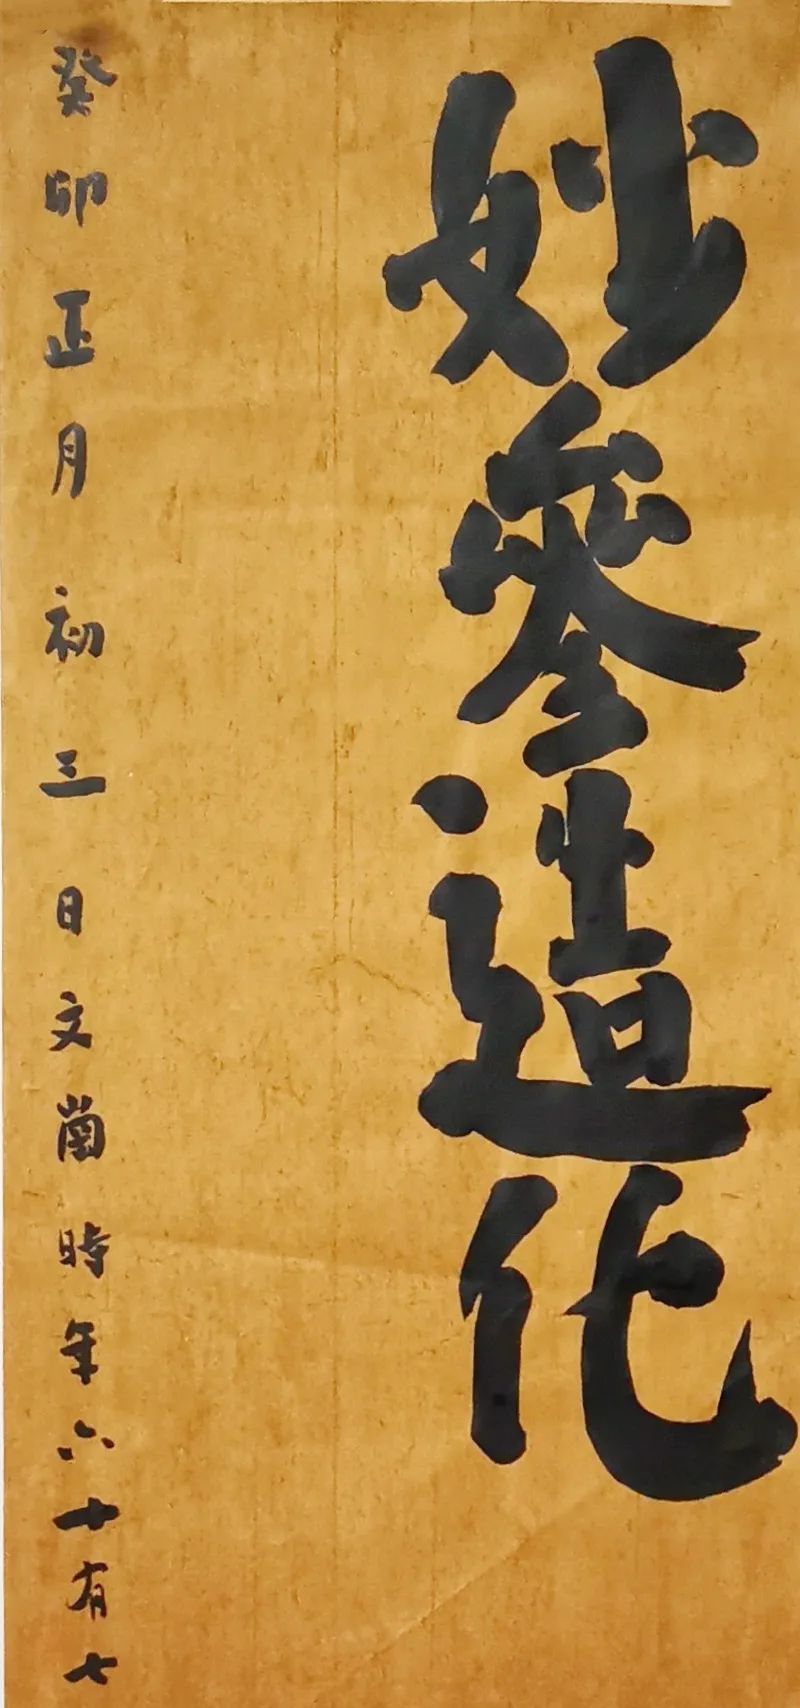 妙參造化
癸卯正月初三日文時年六十有七